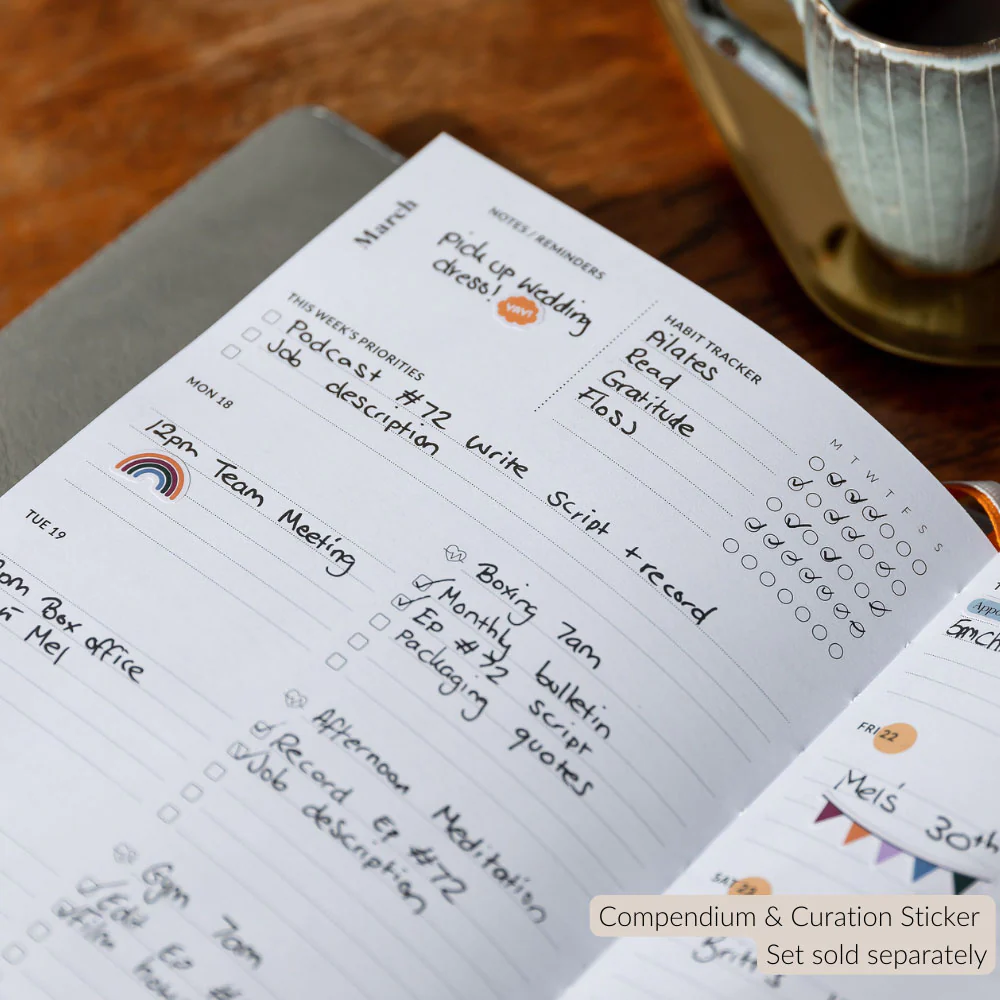 March
NOTES / REMINDERS
Pick up wedding
dress!
YAY!
HABIT TRACKER
Pilates
Read
Gratitude
Floss
M T W T F S S
THIS WEEK'S PRIORITIES
Podcast #72 write script + record
Job description
MON 18
12pm Team Meeting
Boxing 7am
Monthly bulletin
Ep #72 script
Packaging quotes
TUE 19
pm Box office
Mel
Afternoon Meditation
Record Ep #72
Job description
Gym 7am
Edit Ep #
Film
FRI 22
Mel's 30th
SAT 23
Compendium & Curation Sticker
Set sold separately